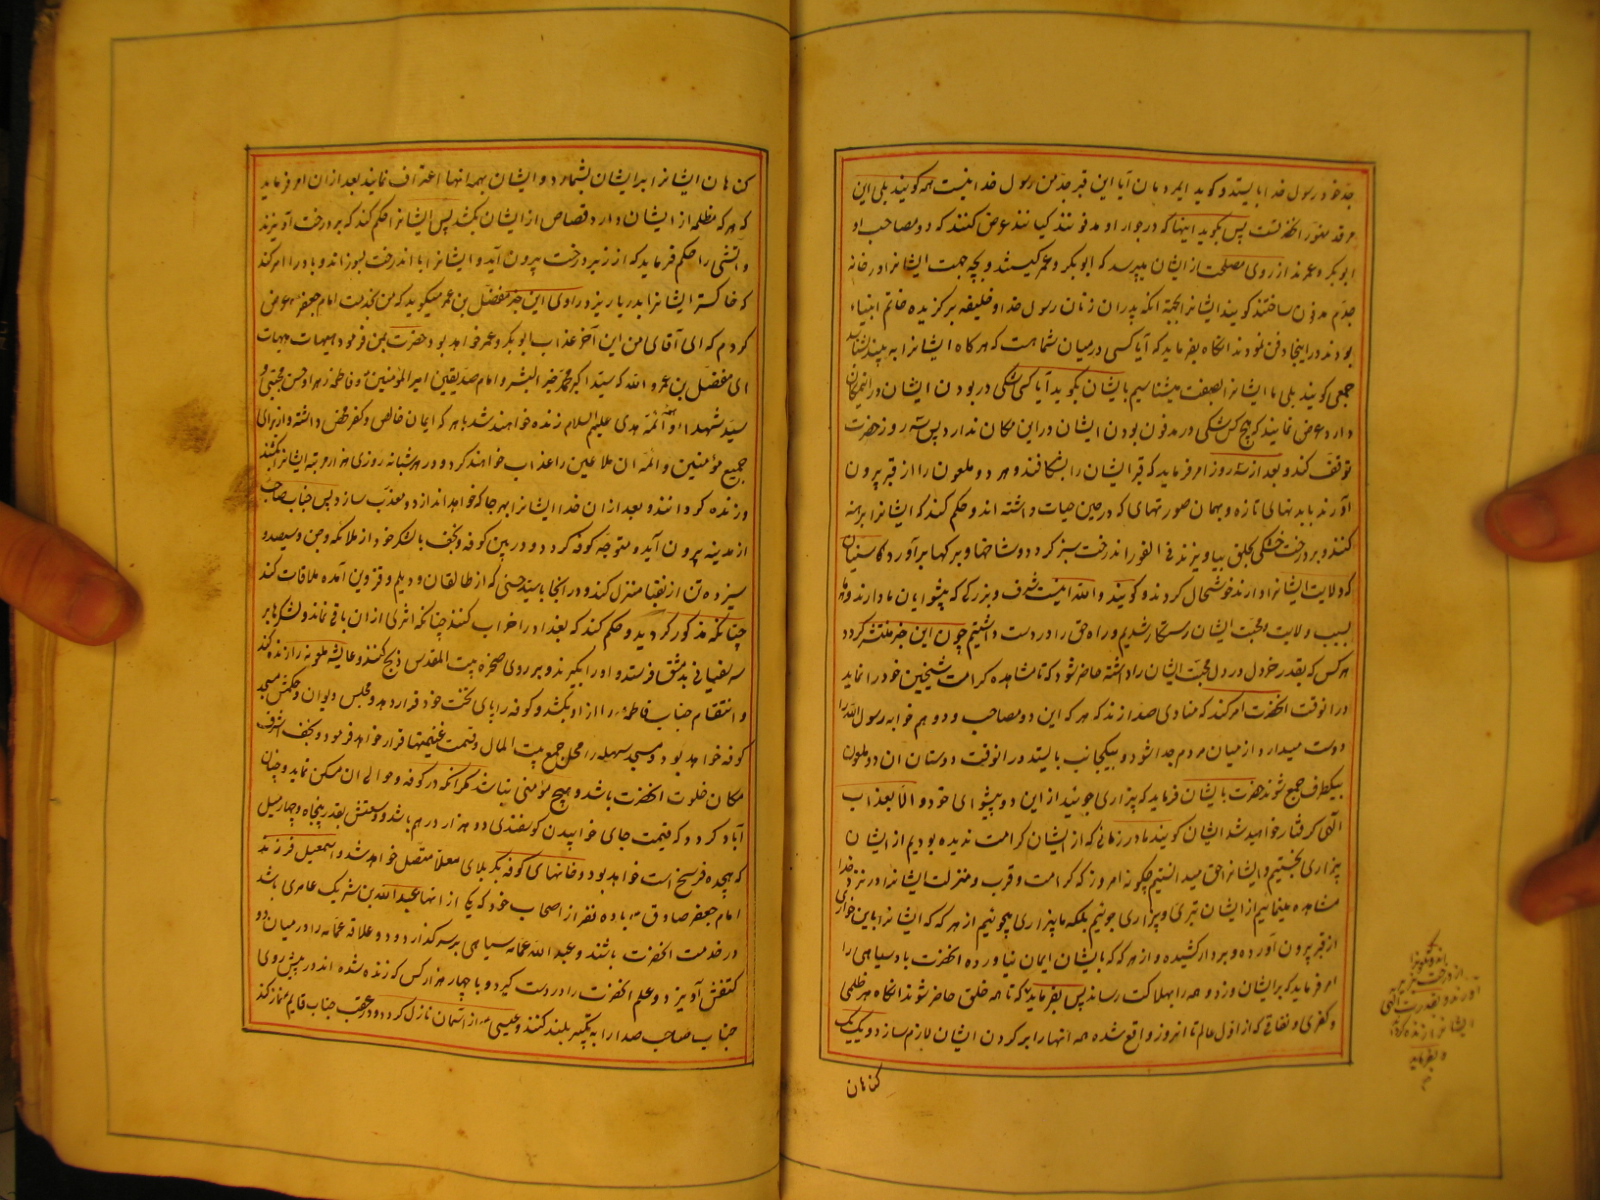 جد خود رسول خدا بایستد و کوید ایمردمان آیا این قبر جد من رسول خدا نیست همه کویند بلی این
مرقد منور آنحضرتست پس بکوید اینها که در جوار او مدفونند کیانند عرض کنند که دو مصاحب او
ابوبکر و عمرند از روی مصلحت از ایشان بپرسد که ابوبکر و عمر کیستند و بچه جهت ایشانرا در خانه
جدم مدفون ساختند کویند ایشانرا بجهة آنکه پدران زنان رسول خدا و خلیفه برکزیده خاتم انبیاء
بودند در اینجا دفن نمودند آنکاه بفرماید که آیا کسی در میان شما هست که هرکاه ایشانرا به بیند بشناسد
جمعی کویند بلی ما ایشانرا بصفت میشناسیم بایشان بکوید آیا کسی شکی در بودن ایشان در این مکان
دارد عرض نمایند که هیچ کس شکی در مدفون بودن ایشان در این مکان ندارد پس سه روز حضرت
توقف کند و بعد از سه روز امر فرماید که قبر ایشان را بشکافند و هر دو ملعون را از قبر بیرون
آورند با بدنهای تازه و بهمان صورتهای که در حین حیات داشته اند و حکم کند که ایشانرا برهنه
کنند و بر درخت خشکی بحلق بیاویزند فی الفور آن درخت سبز کردد و شاخها و برکها برآورد کسانیکه
که ولایت ایشانرا دارند خوشحال کردند و کویند والله اینست شرف و بزرکی که پیشوایان ما دارند و ما
بسبب ولایت و محبت ایشان رستکار شدیم و راه حق را در دست داشتیم چون این خبر منتشر کردد
هر کس که بقدر خردل در دل محبت ایشان را داشته حاضر شود که تا مشاهده کرامت شیخین خود را نماید
در آنوقت آنحضرت امر کند که منادی صدا زند که هر که این دو مصاحب و دو هم خوابه رسول الله را
دوست میدارد از میان مردم جدا شود و بیکجانب بایستد در آنوقت دوستان آن دو ملعون
بیکطرف جمع شوند حضرت بایشان فرماید که بیزاری جوئید از این دو پیشوای خود و الا بعذاب
الهی کرفتار خواهید شد ایشان کویند ما در زمانی که از ایشان کرامت ندیده بودیم از ایشان
بیزاری نجستیم و ایشانرا حق میدانستیم چکونه امروز که کرامت و قرب و منزلت ایشانرا در نزد خدا
مشاهده مینمائیم از ایشان تبری و بیزاری جوئیم بلکه ما بیزاری میجوئیم از هر که که ایشانرا باین خواری
از قبر بیرون آورده و بر دار کشیده و از هر که که بایشان ایمان نیاورده آنحضرت باد سیاهی را
امر فرماید که بر ایشان وزد و همه را بهلاکت رساند پس بفرماید که تا همه خلق حاضر شوند آنکاه هر ظلمی
و کفری و نفاقی که از اول عالم تا امروز واقع شده همه آنها را بر کردن ایشان لازم سازد و یک یک
کناهان
از درخت بزیر
آورند و بقدرت الهی
ایشانرا زنده کرداند
و بفرماید
کناهان ایشانرا بر ایشان بشمارد و ایشان بهمه آنها اعتراف نمایند بعد از آن امر فرماید
که هر که مظلمه از ایشان دارد قصاص از ایشان بکشد پس ایشانرا حکم کند که بر درخت آویزند
و آتشی را حکم فرماید که از زیر درخت بیرون آید و ایشانرا با آن درخت بسوزاند و باد را امر کند
که خاکستر ایشانرا بدریا ریزد راوی این خبر مفضل بن عمر میکوید که من بخدمت امام جعفر عرض
کردم که ای آقای من این آخر عذاب ابوبکر و عمر خواهد بود حضرت بمن فرمود هیهات هیهات
ای مفضل بن عمر والله که سید اکبر محمد خیر البشر و امام صدیقین امیر المؤمنین و فاطمه زهرا و حسن مجتبی و
سید شهداء و ائمه هدی علیهم السلام زنده خواهند شد با هر که ایمان خالص و کفر محض داشته و از برای
جمیع مؤمنین و ائمه آن ملاعین را عذاب خواهند کرد و در هر شبانه روزی هزار مرتبه ایشانرا بکشند
و زنده کردانند و بعد از آن خدا ایشانرا بهر جا که خواهد اندازد و معذب سازد پس جناب صاحب
از مدینه بیرون آید و متوجه کوفه کردد و در بین کوفه و نجف با لشکر خود از ملائکه و جن و سیصد و
سیزده تن از نقبا منزل کند و در آنجا با سید حسنی که از طالقان و دیلم و قزوین آمده ملاقات کند
چنانکه مذکور کردید و حکم کند که بغداد را خراب کنند چنانکه اثری از آن باقی نماند و لشکرها بر
سر سفیانی بدمشق فرستد و او را بکیرند و بر روی صخره بیت المقدس ذبح کنند و عایشه ملعونه را زنده کند
و انتقام جناب فاطمه را از او بکشد و کوفه را پای تخت خود قرار دهد و مجلس دیوان و حکمش مسجد
کوفه خواهد بود و مسجد سهله را محل جمع بیت المال و قسمت غنیمتها قرار خواهد فرمود و نجف اشرف
مکان خلوت آنحضرت باشد و هیچ مؤمنی نباشد مکر آنکه در کوفه و حوالی آن مسکن نماید و چنان
آباد کردد که قیمت جای خوابیدن کوسفندی دو هزار درهم باشد و وسعتش بقدر پنجاه و چهار میل
که هیجده فرسخ است خواهد بود و خانهای کوفه بکربلای معلا متصل خواهد شد و اسمعیل فرزند
امام جعفر صادق با ده نفر از اصحاب خود که یکی از آنها عبد الله بن شریک عامری باشد
در خدمت آنحضرت باشند و عبد الله عمامه سیاهی بر سر کذارد و دو علاقه عمامه را در میان دو
کتفش آویزد و علم آنحضرت را در دست کیرد و با چهار هزار کس که زنده شده اند در پیش روی
جناب صاحب صدا را به تکبیر بلند کنند و عیسی از آسمان نازل کردد و در عقب جناب قایم نماز کند